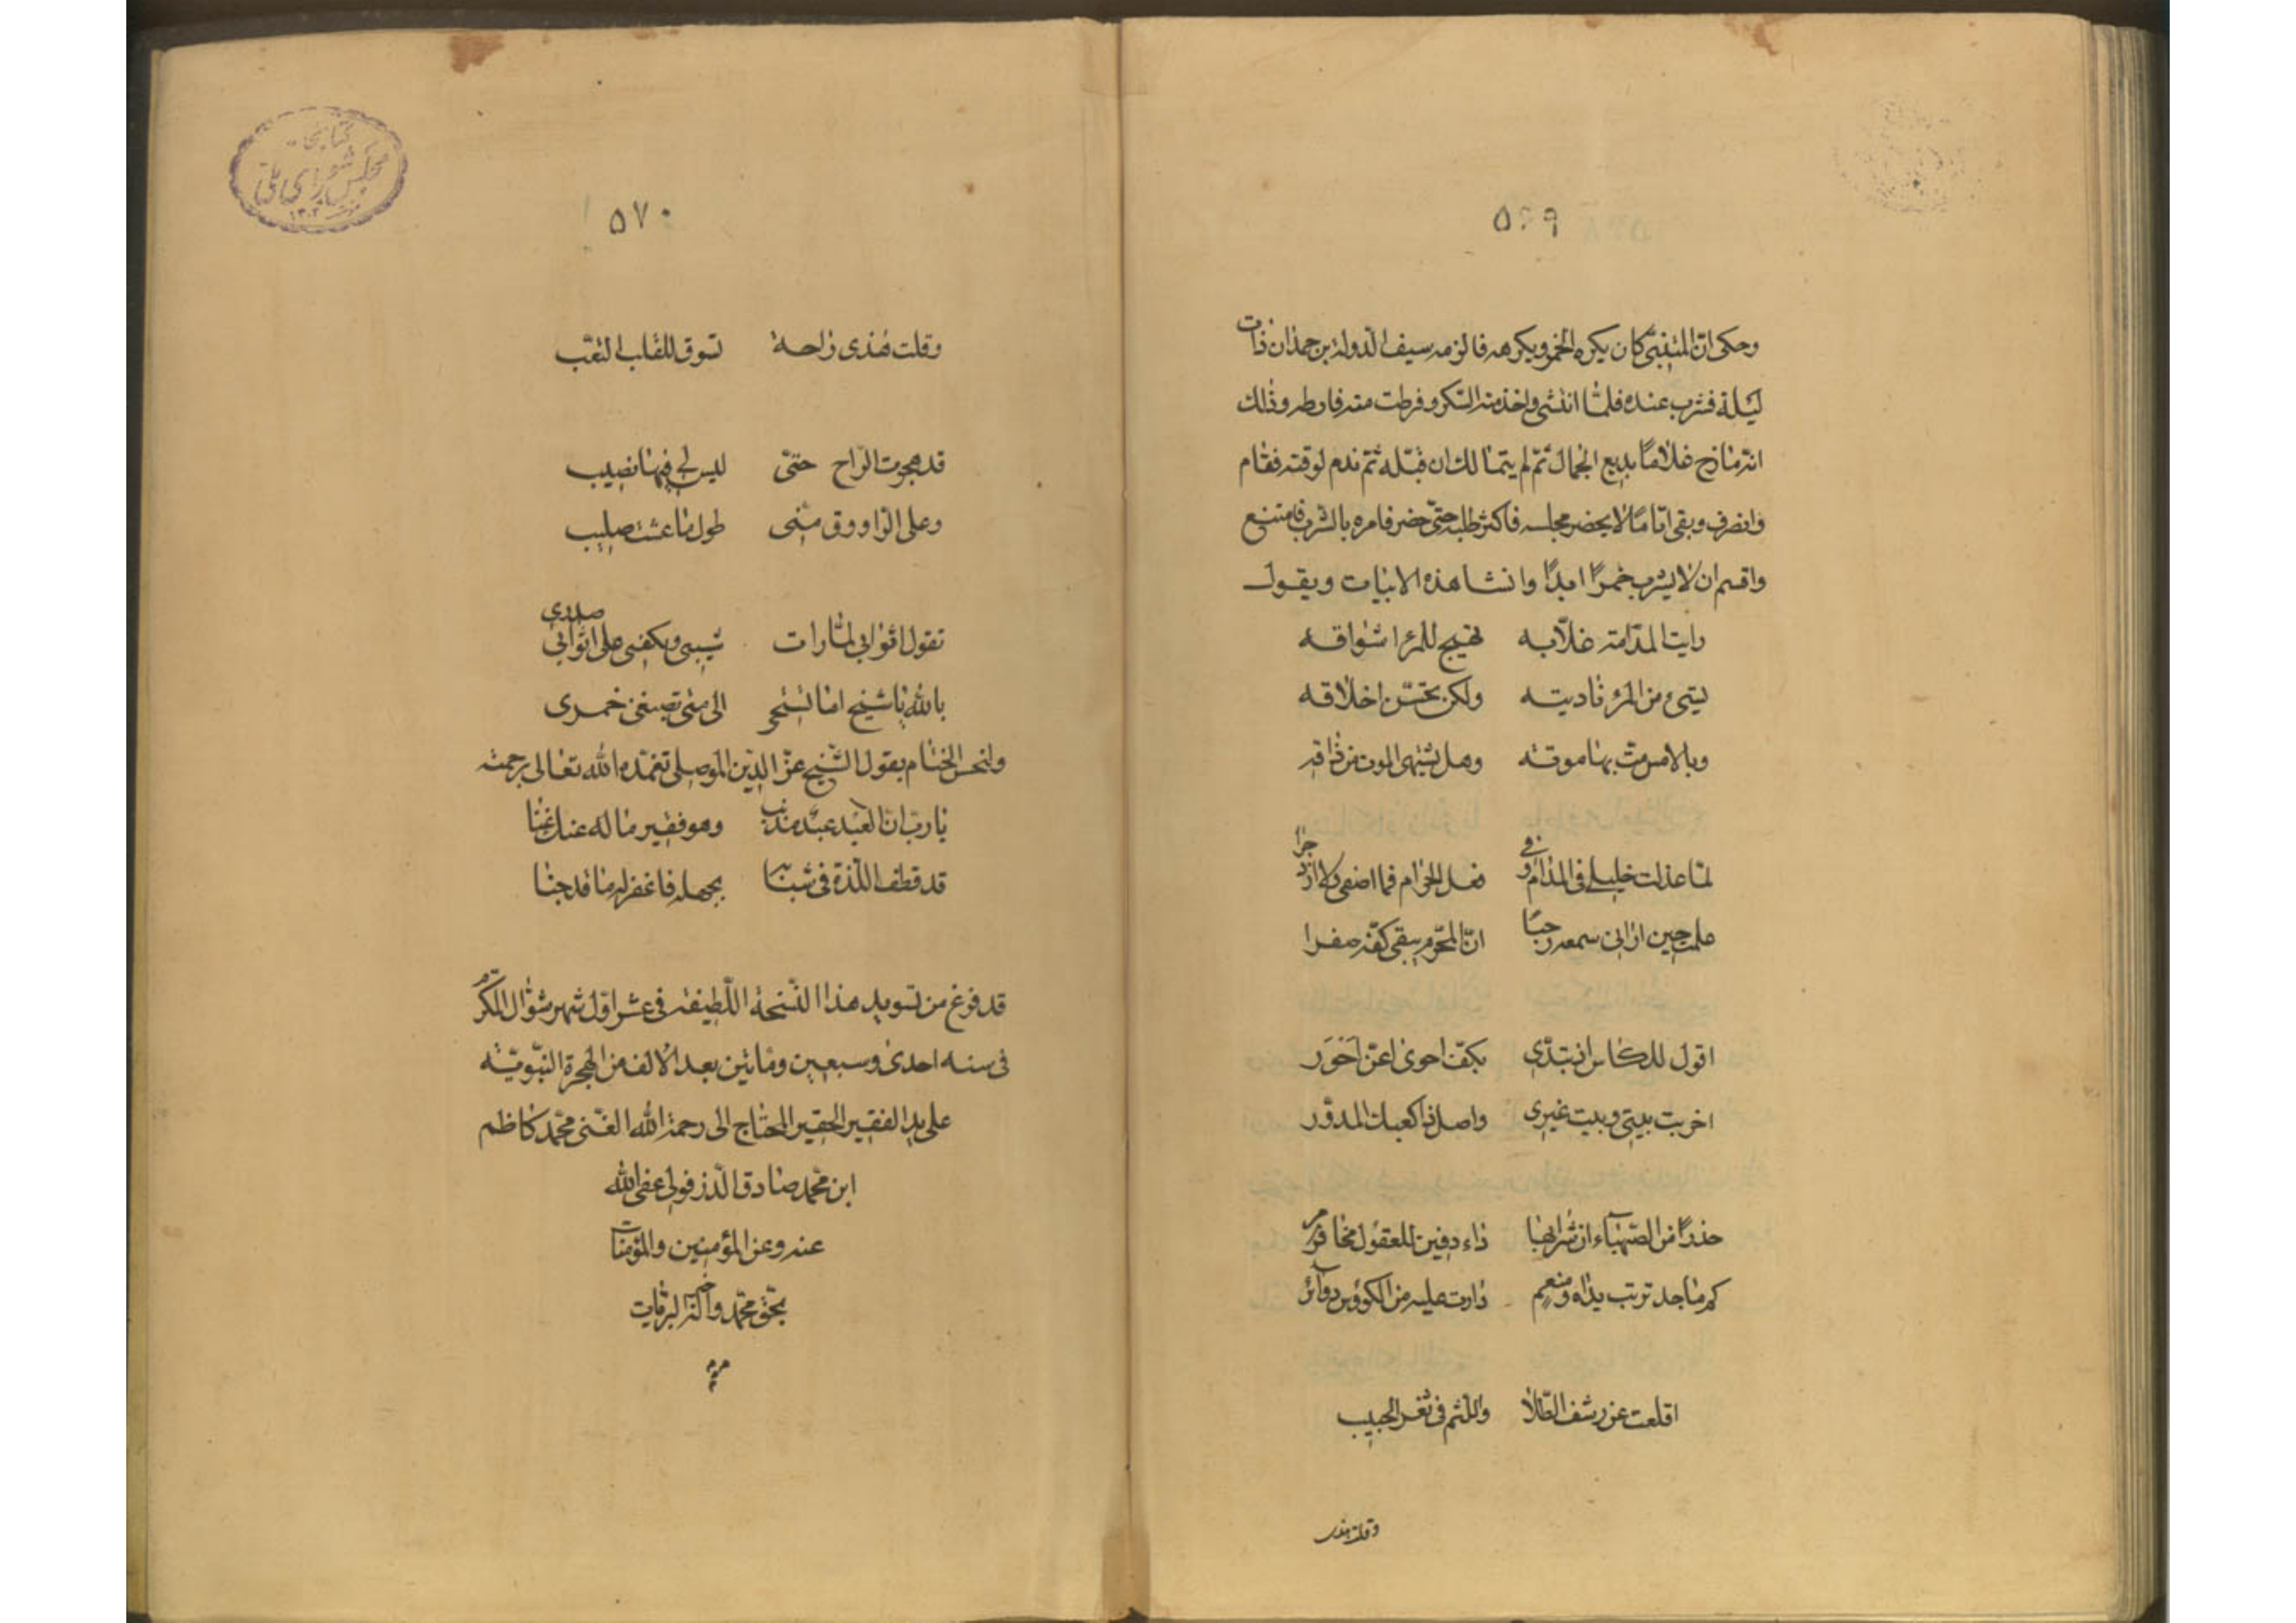 ٥٦٩
وحكى انّ المتنبّى كان يكره الخمر ويكرهه فالزمه سيف الدولة بن حمدان ذات
ليلة فشرب عنده فلمّا انتشى واخذ منه السّكر وفرطت منه فارطه وذلك
انّه مازح غلاماً بديع الجمال ثمّ لم يتمالك ان قبّله ثمّ ندم لوقته فقام
وانصرف وبقى ايّاماً لا يحضر مجلسه فاكثر طلبه حتّى حضر فامره بالشرب فامتنع
واقسم ان لا يشرب خمراً ابداً وانشا هذه الابيات ويقول
رايت المدّامة غلّابه تهيج للمرء اشواقه
تسيئ من المرء تاديته ولكن تحسّن اخلاقه
وبالامس متّ بها موتة وهل يشتهى الموت من ذاقه
لمّا عذلت خليلى فى المدام وفى فعل الحرام فما اصغى ولا ازدجرا
علمت حين ارانى سمعه رحباً انّ المحرّم يبقى كفّه صفرا
اقول للكاس اذ تبدّى بكفّ احوى اغنّ احور
اخربت بيتى وبيت غيرى واصل ذا كعبك المدوّر
حذراً من الصّهباء ان شرابها داء دفين للعقول مخامر
كم ماجد تربت يداه ومنعم دارت عليه من الكووس دوآئر
اقلعت عن رشف الطّلا واللّثم فى ثغر الحبيب
وقلت هذى
٥٧٠
وقلت هذى راحة تسوق للقلب التعب
قد هجرت الرّاح حتّى ليس لى فيها نصيب
وعلى الرّاووق منّى طول ما عشت صليب
تقول اثوابى لمّا رات شيبى ويكفى على اثوابى صدرى
بالله يا شيخ اما تستحى الى متى تصبغ خمرى
ولنحسن الختام بقول الشّيخ عزّ الدين الموصلى تغمّده الله تعالى برحمته
يا ربّ انّ العبد عبد مذنب وهو فقير ما له عنك غنا
قد قطف اللّذة فى شبابه بجهله فاغفر له ما قد جنا
قد فرغ من تسويد هذا النّسخة اللّطيفه فى عشر اوّل شهر شوّال المكرّم
فى سنه احدى وسبعين ومأتين بعد الالف من الهجرة النّبويّه
على يد الفقير الحقير المحتاج الى رحمة الله الغنى محمّد كاظم
ابن محمّد صادق الدّزفولى عفى الله
عنه وعن المؤمنين والمؤمنات
بحقّ محمّد وآله خير البريات
كتابخانه
مجلس شوراى ملّى
١٣٠٢